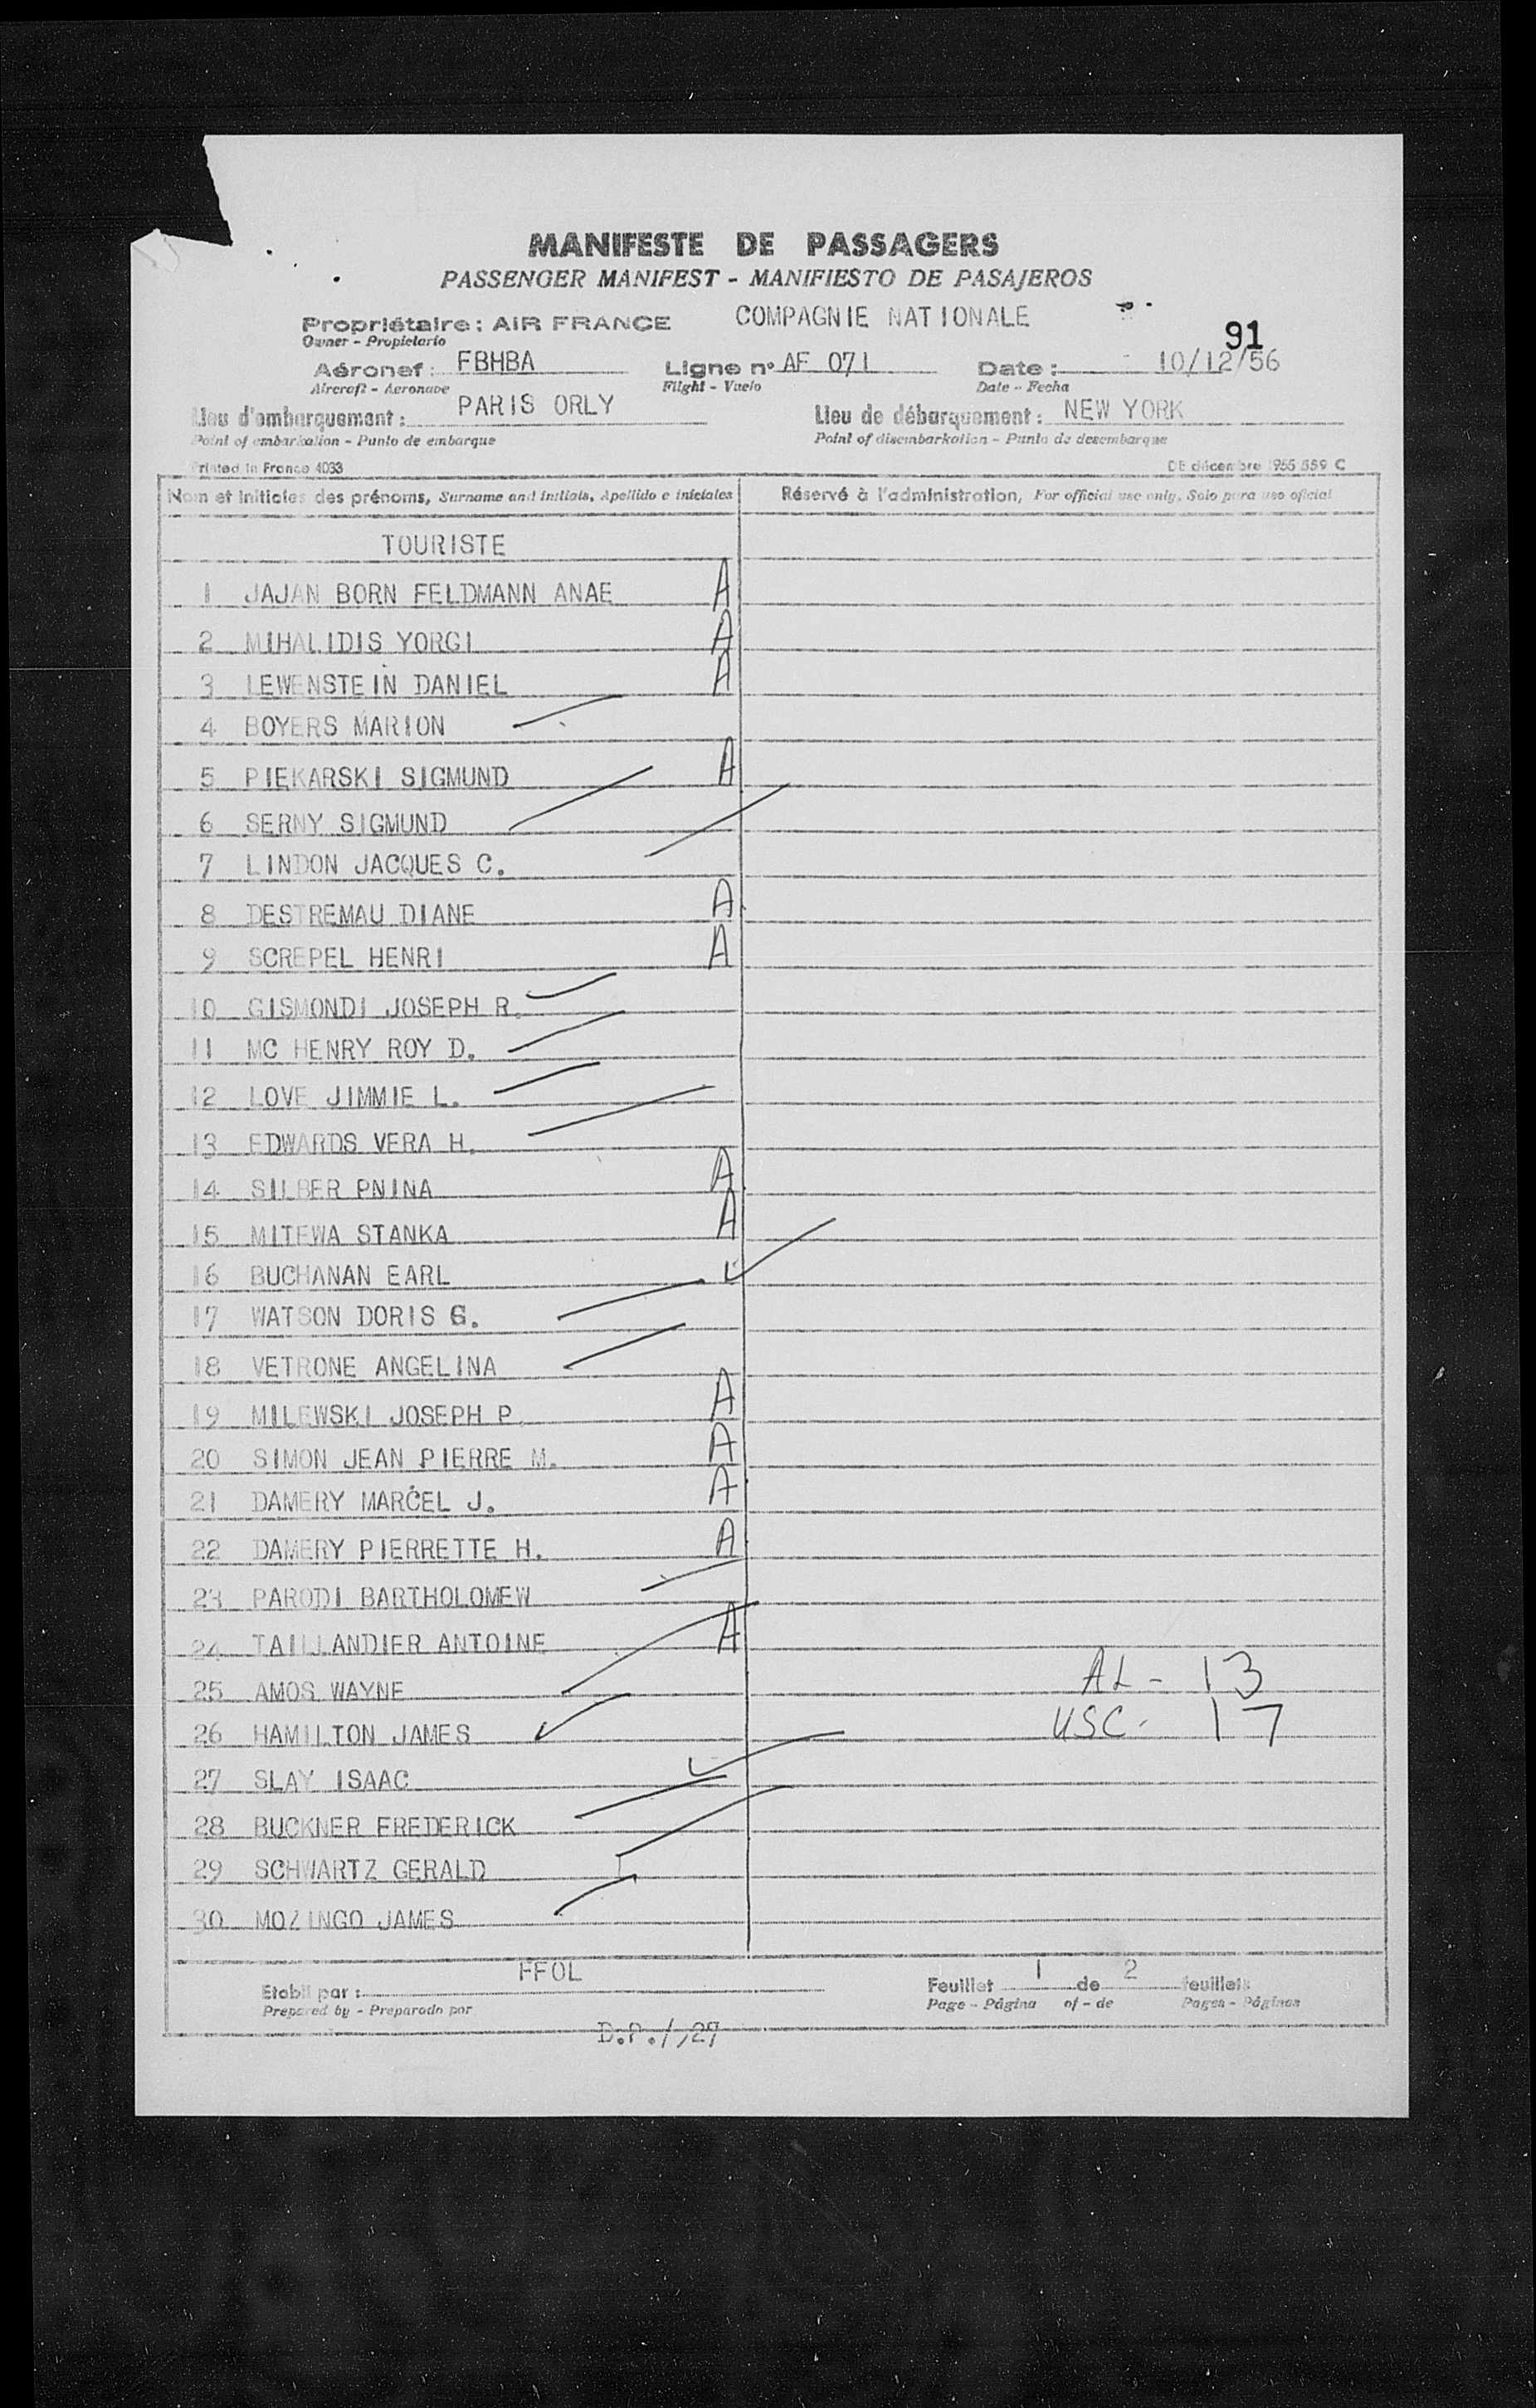 MANIFESTE DE PASSAGERS
PASSENGER MANIFEST - MANIFIESTO DE PASAJEROS
Propriétaire : AIR FRANCE COMPAGNIE NATIONALE
Owner - Propietario
91
Aéronef : FBHBA Ligne n° AF 071 Date : 10/12/56
Aircraft - Aeronave Flight - Vuelo Date - Fecha
Lieu d'embarquement : PARIS ORLY Lieu de débarquement : NEW YORK
Point of embarkation - Punto de embarque Point of disembarkation - Punto de desembarque
Printed in France 4033 DE décembre 1955 559 C
Nom et initiales des prénoms, Surname and initials, Apellido e iniciales Réservé à l'administration, For official use only, Solo para uso oficial
TOURISTE
1 JAJAN BORN FELDMANN ANAE A
2 MIHALIDIS YORGI A
3 LEWENSTEIN DANIEL A
4 BOYERS MARION
5 PIEKARSKI SIGMUND A
6 SERNY SIGMUND
7 LINDON JACQUES C.
8 DESTREMAU DIANE A
9 SCREPEL HENRI A
10 GISMONDI JOSEPH R.
11 MC HENRY ROY D.
12 LOVE JIMMIE L.
13 EDWARDS VERA H.
14 SILBER PNINA A
15 MITEWA STANKA A
16 BUCHANAN EARL
17 WATSON DORIS G.
18 VETRONE ANGELINA
19 MILEWSKI JOSEPH P. A
20 SIMON JEAN PIERRE M. A
21 DAMERY MARCEL J. A
22 DAMERY PIERRETTE H. A
23 PARODI BARTHOLOMEW
24 TAILLANDIER ANTOINE A
25 AMOS WAYNE AL - 13
26 HAMILTON JAMES USC - 17
27 SLAY ISAAC
28 BUCKNER FREDERICK
29 SCHWARTZ GERALD
30 MOZINGO JAMES
Etabli par : FFOL Feuillet 1 de 2 feuillets
Prepared by - Preparado por Page - Página of - de Pages - Páginas
D.P./,29